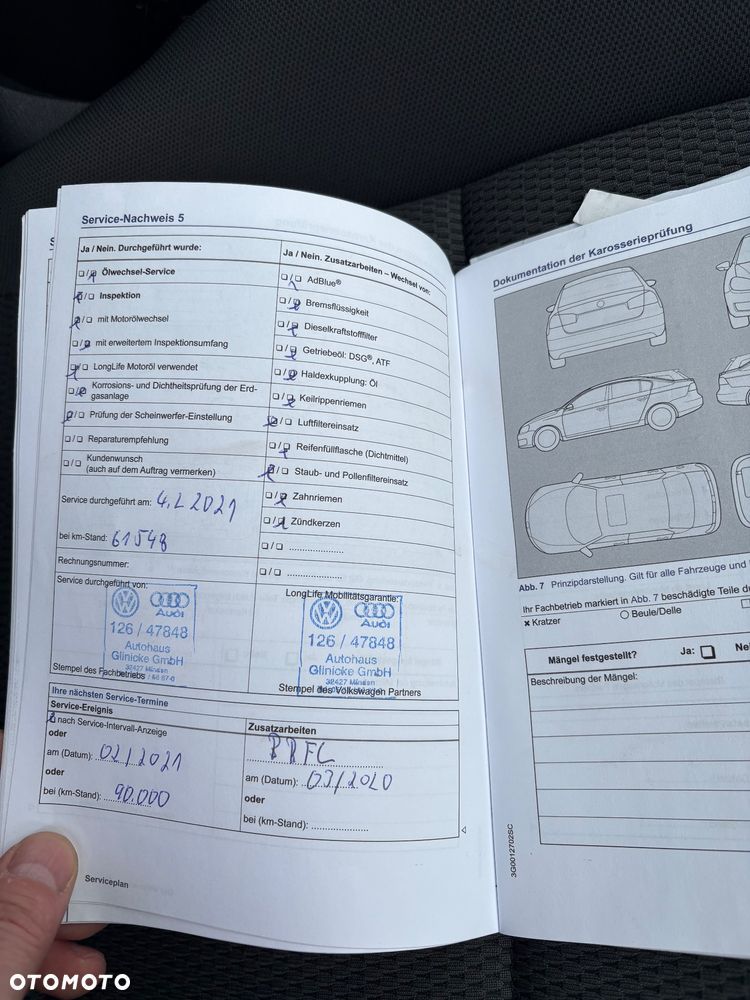 Service-Nachweis 5
Ja / Nein. Durchgeführt wurde:
Ölwechsel-Service
Inspektion
mit Motorölwechsel
mit erweitertem Inspektionsumfang
LongLife Motoröl verwendet
Korrosions- und Dichtheitsprüfung der Erd-
gasanlage
Prüfung der Scheinwerfer-Einstellung
Reparaturempfehlung
Kundenwunsch
(auch auf dem Auftrag vermerken)
Service durchgeführt am: 4.2.2021
bei km-Stand: 61548
Rechnungsnummer:
Service durchgeführt von:
Audi
126 / 47848
Autohaus
Glinicke GmbH
32427 Minden
Stempel des Fachbetriebs
Ja / Nein. Zusatzarbeiten – Wechsel von:
AdBlue®
Bremsflüssigkeit
Dieselkraftstofffilter
Getriebeöl: DSG®, ATF
Haldexkupplung: Öl
Keilrippenriemen
Luftfiltereinsatz
Reifenfüllflasche (Dichtmittel)
Staub- und Pollenfiltereinsatz
Zahnriemen
Zündkerzen
LongLife Mobilitätsgarantie:
Audi
126 / 47848
Autohaus
Glinicke GmbH
32427 Minden
Stempel des Volkswagen Partners
Ihre nächsten Service-Termine
Service-Ereignis
nach Service-Intervall-Anzeige
oder
am (Datum): 02/2021
oder
bei (km-Stand): 90.000
Zusatzarbeiten
am (Datum): 03/2020
oder
bei (km-Stand):
Serviceplan
Dokumentation der Karosserieprüfung
Abb. 7 Prinzipdarstellung. Gilt für alle Fahrzeuge und
Ihr Fachbetrieb markiert in Abb. 7 beschädigte Teile de
x Kratzer
Beule/Delle
Mängel festgestellt? Ja:
Beschreibung der Mängel:
3G0012702SC
OTOMOTO